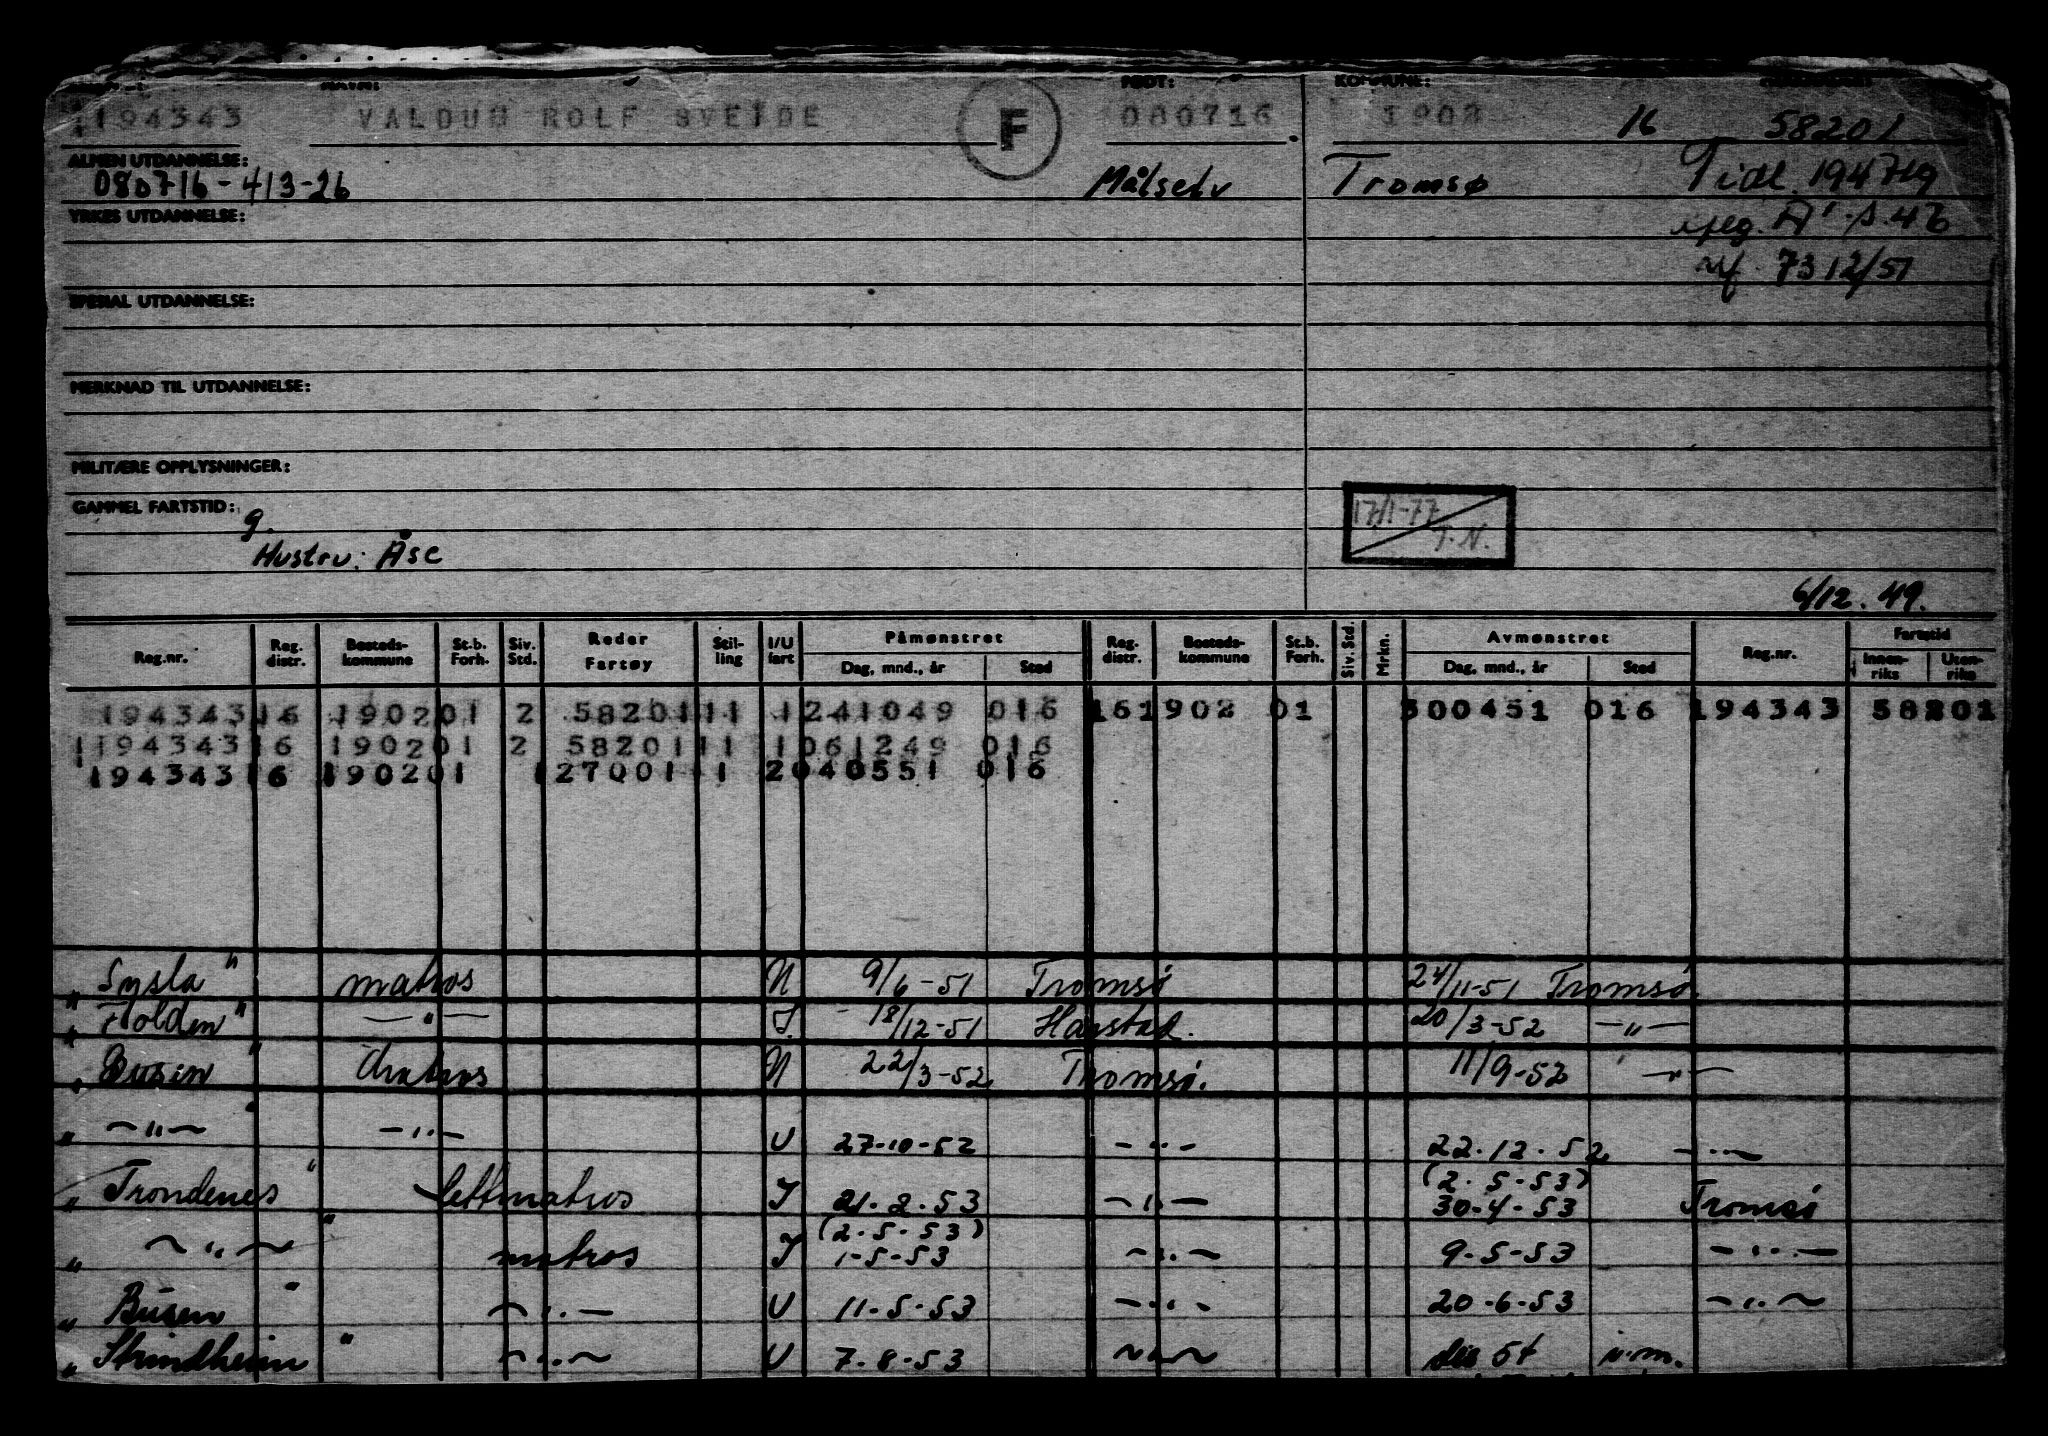 FØDT: KOMMUNE:
194343 VALDUM ROLF SVEIDE F 080716 1902 16 58201
ALMEN UTDANNELSE:
080716-413-26 Målselv Tromsø Tidl. 194749
YRKES UTDANNELSE:
73 12/51
SPESIAL UTDANNELSE:
MERKNAD TIL UTDANNELSE:
MILITÆRE OPPLYSNINGER:
GAMMEL FARTSTID: g.
17/1-77 T.N.
Hustru: Åse
6/12.49.
Reg.nr. Reg. distr. Bosteds-kommune St.b. Forh. Siv. Std. Reder Fartøy Stil-ling I/U fart Påmønstret Dag, mnd., år Sted Reg. distr. Bosteds-kommune St.b. Forh. Siv. Std. Mrkn. Avmønstret Dag, mnd., år Sted Reg.nr. Fartstid Innen-riks Uten-riks
194343 16 1902 01 2 58201 11 1 241049 016 16 1902 01 300451 016 194343 58201
194343 16 1902 01 2 58201 11 1 061249 016
194343 16 1902 01 127001 11 2 040551 016
" Sysla " matros U 9/6-51 Tromsø 24/11-51 Tromsø
" Folden " —"— I. 18/12-51 Harstad. 20/3-52 —"—
" Busen " Matros U 22/3-52 Tromsø. 11/9-52 —"—
" —"— " —"— U 27-10-52 —"— 22.12.52 —"—
" Trondenes " lettmatros I 21.2.53 —"— (2.5-53) 30-4-53 Tromsø
" —"— " matros I (2.5.53) 1-5-53 —"— 9.5-53 —"—
" Busen " —"— U 11.5-53 —"— 20-6-53 —"—
" Strindheim " —"— U 7.8-53 —"—